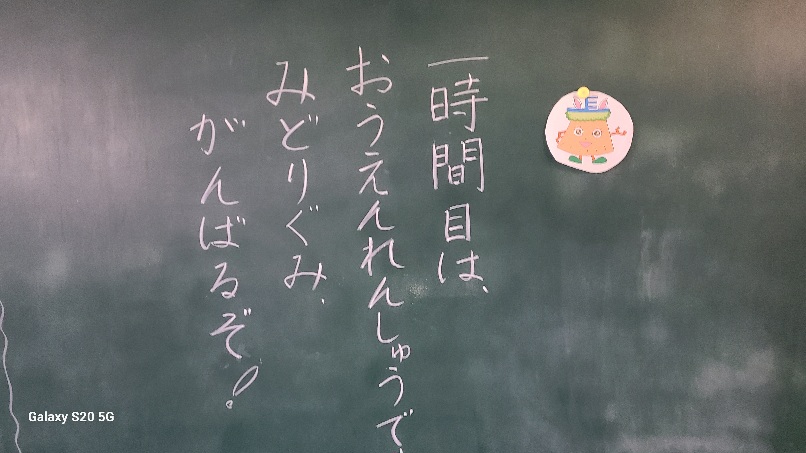 一時間目は、
おうえんれんしゅうで
みどりぐみ、
がんばるぞ!
Galaxy S20 5G